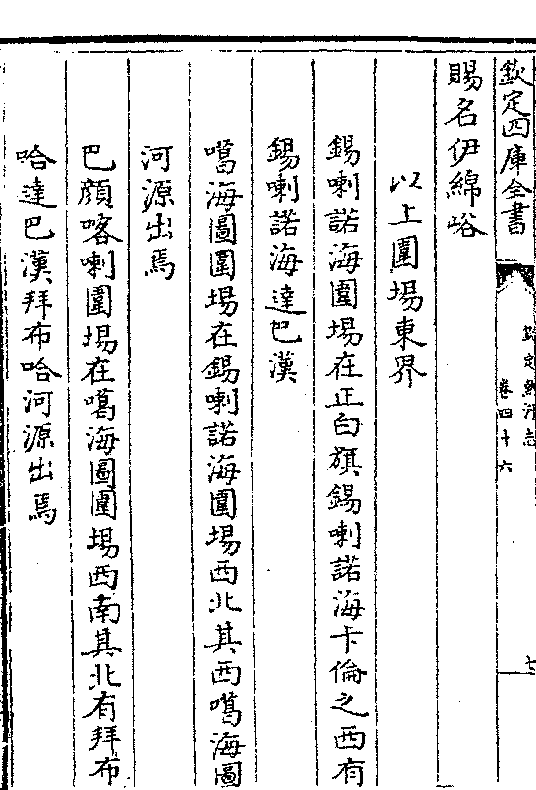 欽定四庫全書
欽定熱河志
卷四十六
七
賜名伊綿峪
以上圍場東界
錫喇諾海圍場在正白旗錫喇諾海卡倫之西有
錫喇諾海達巴漢
噶海圖圍場在錫喇諾海圍場西北其西噶海圖
河源出焉
巴顔喀喇圍場在噶海圖圍場西南其北有拜布
哈達巴漢拜布哈河源出焉